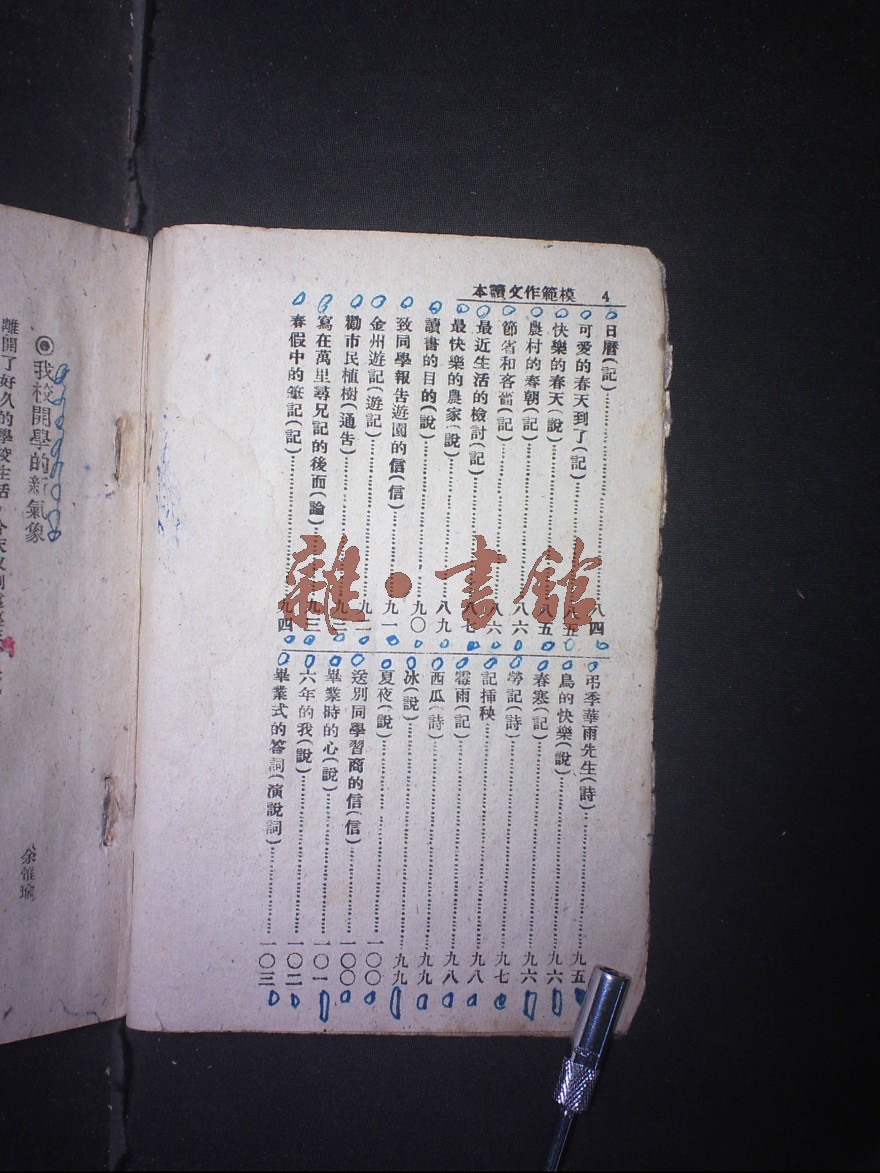 4 模範作文讀本
日曆(記)……八四
可愛的春天到了(記)……八五
快樂的春天(說)……八五
農村的春朝(記)……八六
節省和吝嗇(記)……八六
最近生活的檢討(記)……八七
最快樂的農家(說)……八九
讀書的目的(說)……九〇
致同學報告遊園的信(信)……九一
金州遊記(遊記)……九二
勸市民植樹(通告)……九二
寫在萬里尋兄記的後面(論)……九三
春假中的筆記(記)……九四
弔季華雨先生(詩)……九五
鳥的快樂(說)……九六
春寒(記)……九六
勞記(詩)……九七
記插秧……九八
霉雨(記)……九八
西瓜(詩)……九九
冰(說)……九九
夏夜(說)……一〇〇
送別同學習商的信(信)……一〇〇
畢業時的心(說)……一〇一
六年的我(說)……一〇二
畢業式的答詞(演說詞)……一〇三
雜·書館
我校開學的新氣象
余惟瑜
離開了好久的學校生活，今天又到